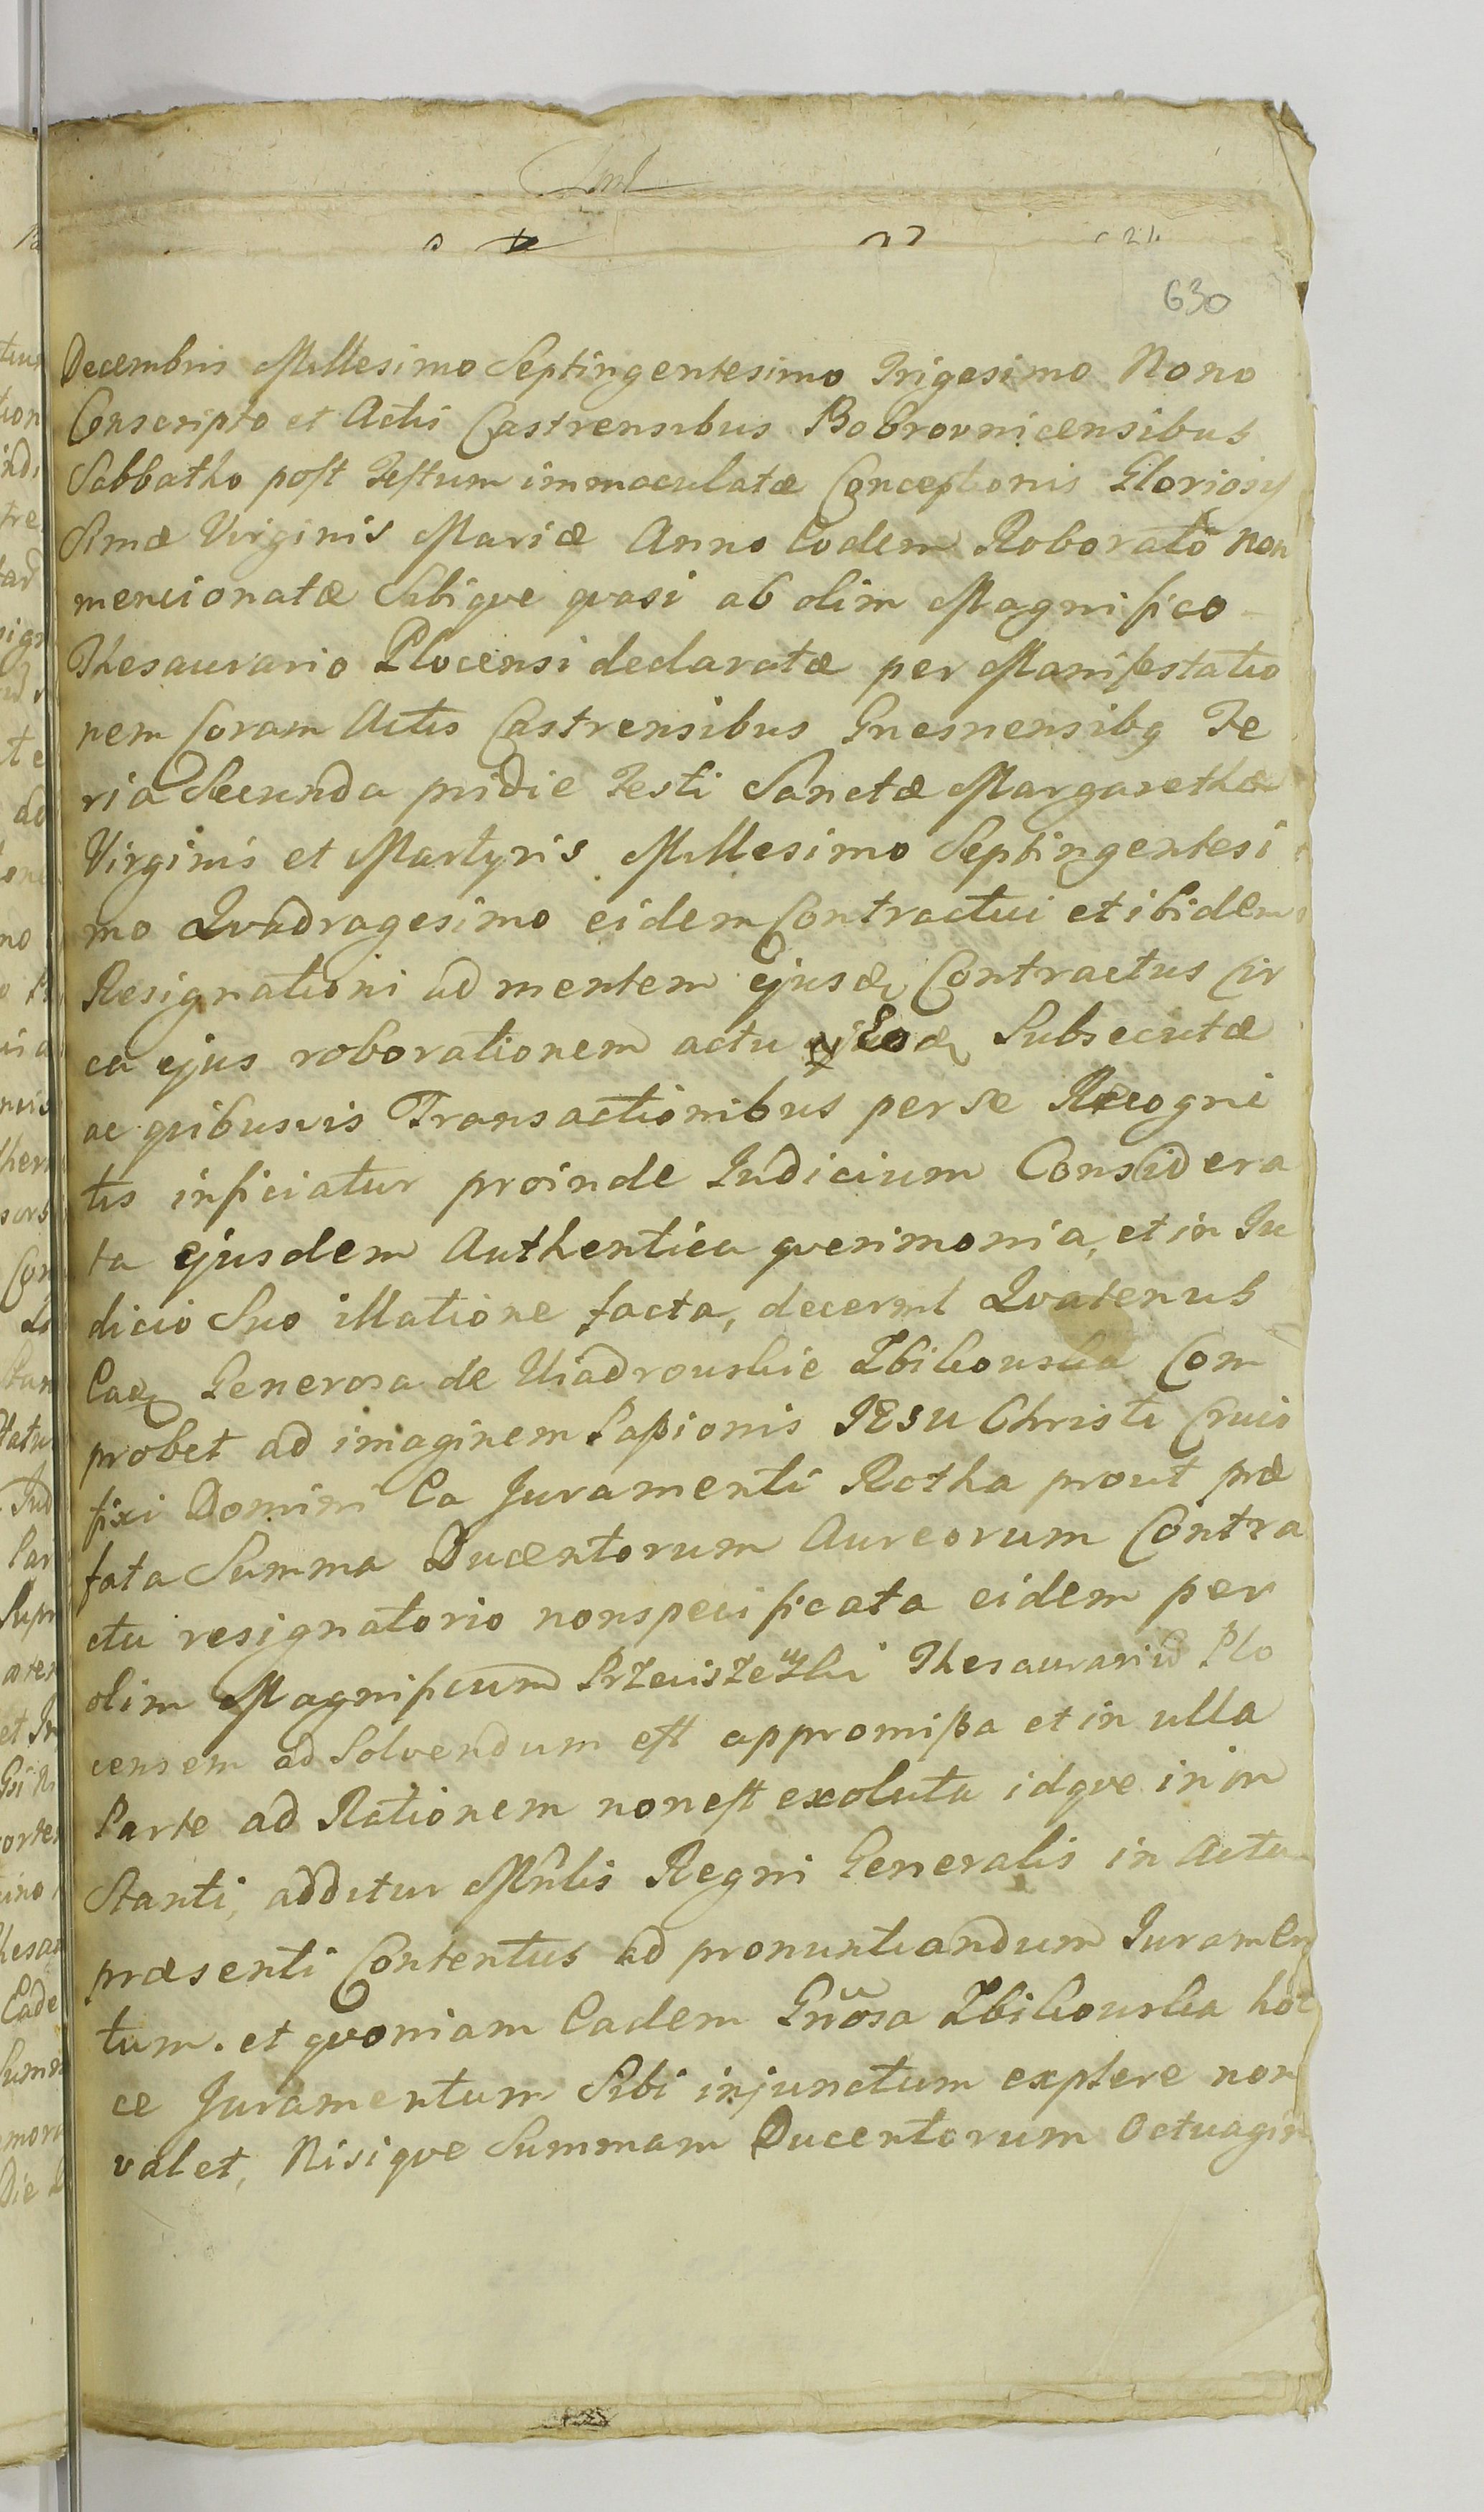 630
Decembris Millesimo Septingentesimo Trigesimo Nono
Conscripto et Actis Castrensibus Bobrovnicensibus
Sabbatho post Festum immaculatæ Conceptionis Gloriosis
Simæ Virginis Mariæ Anno Eodem Roborato non
mencionatæ Sibique quasi ab olim Magnifico
Thesaurario Plocensi declaratæ per Manifestatio
nem Coram Actis Castrensibus Gnesnensibq Fe
ria Secunda pridie Festi Sanctæ Margarethæ
Virginis et Martyris Millesimo Septingentesi
mo Qvadragesimo eidem Contractui et ibidem
Resignationi ad mentem ejusdq Contractus Cir
ca ejus roborationem actu Eodq Subsecutæ
ac quibusvis Transactionibus per se Recogni
tis inficiatur proinde Judicium Considera
ta ejusdem Authentica querimonia, et in Ju
dicio Suo illatione facta, decernit Qvatenus
Eadq Generosa de Uiadrouskie Zbikouska Com
probet ad imaginem Paßionis JESU Christi Cruci
fixi Domini Ea Juramenti Rotha prout præ
fata Summa Ducentorum Aureorum Contra
ctu resignatorio non specificata eidem per
olim Magnificum Thesaurariu Plo
censem ad Solvendum est appromißa et in ulla
Parte ad Rationem non est exoluta idque in in
Stanti, additur Mnlis Regni Generalis in Actu
præsenti Contentus ad pronuntiandum Juramen
tum. et quoniam Eadem Gnosa Zbikouska hoc
ce Juramentum Sibi injunctum explere non
valet, Nisique Summam Ducentorum Octuagin